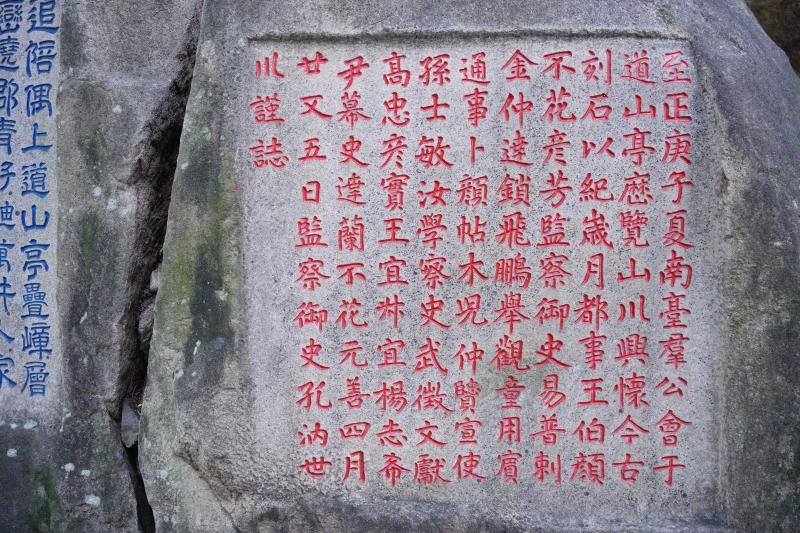 至正庚子夏南臺羣公會于
道山亭歷覽山川興懷今古
刻石以紀歲月都事王伯顔
不花彥芳監察御史易普剌
金仲達鎖飛鵬舉觀童用賓
通事卜顔帖木児仲贇宣使
孫士敏汝學察史武徵文獻
髙忠彥實王宜宜楊志斋
尹幕史達蘭不花元善四月
廿又五日監察御史孔汭世
川謹誌
追陪偶上道山亭疊嶂層
巒繞郡青萬井人家